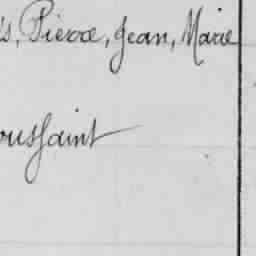 s, Pierre, Jean, Marie
oussaint